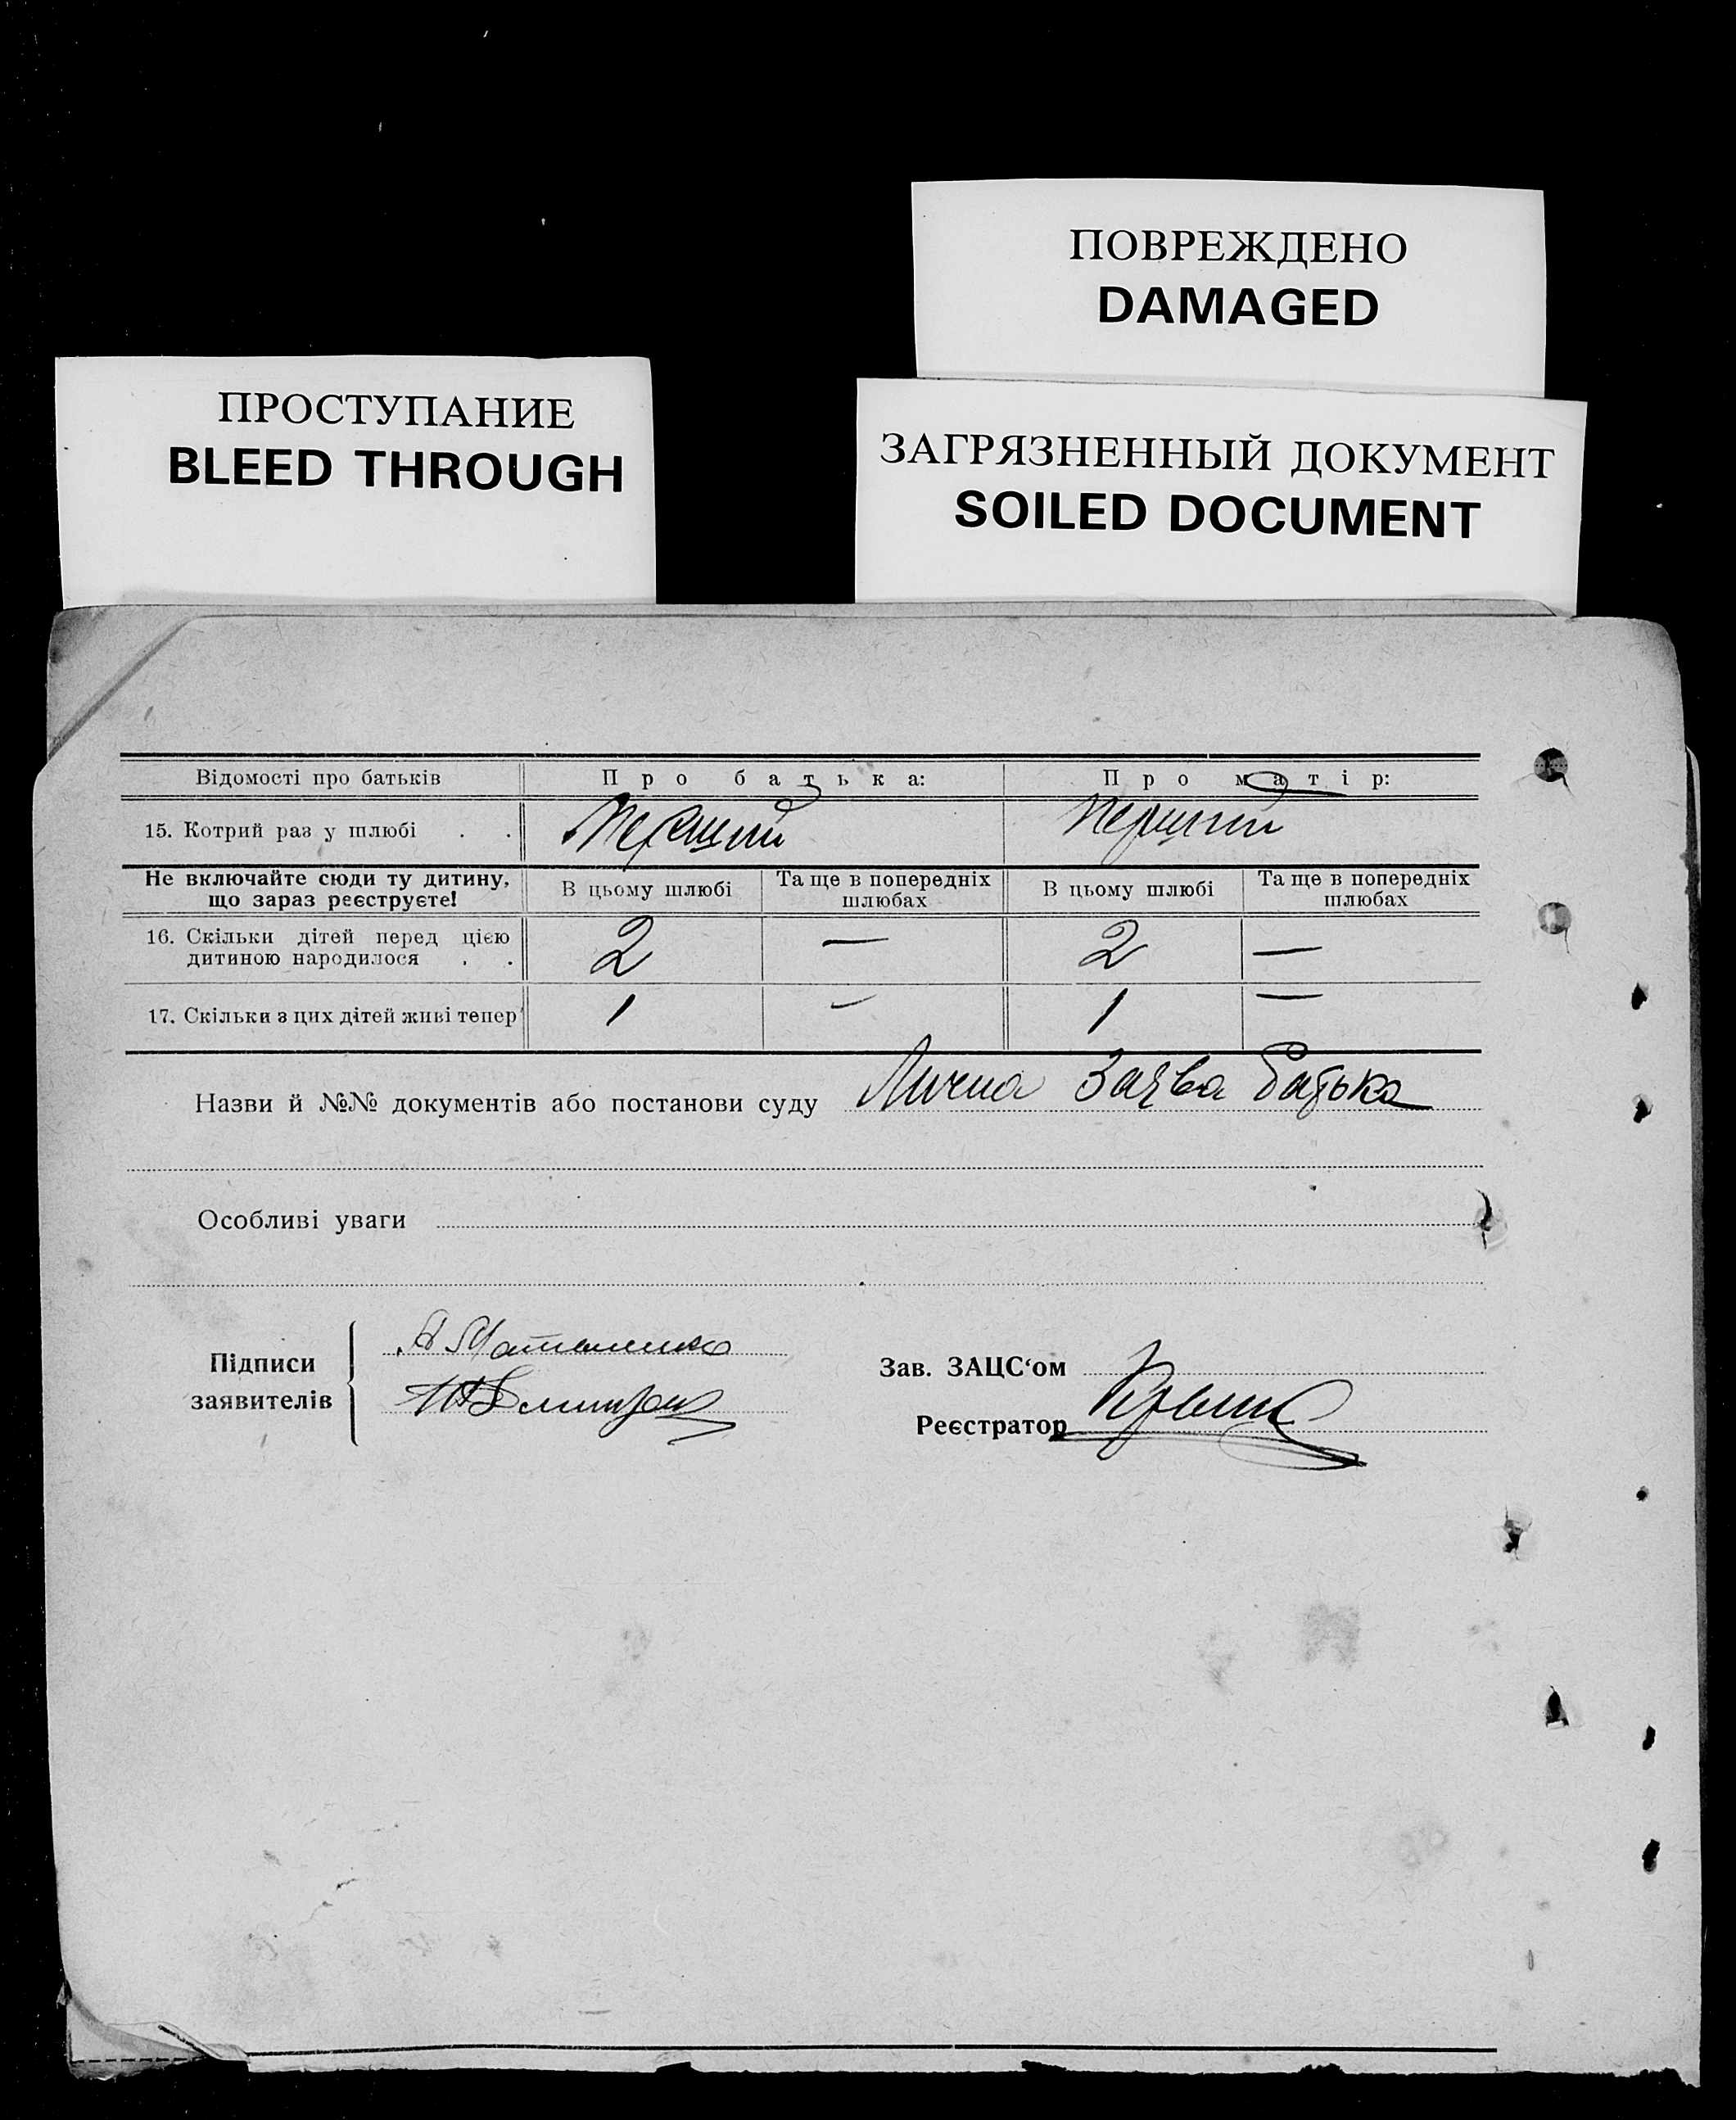 ПОВРЕЖДЕНО
DAMAGED
ПРОСТУПАНИЕ
BLEED THROUGH
ЗАГРЯЗНЕННЫЙ ДОКУМЕНТ
SOILED DOCUMENT
Відомості про батьків Про батька: Про матір:
15. Котрий раз у шлюбі . . Перший Перший
Не включайте сюди ту дитину, що зараз реєструєте! В цьому шлюбі Та ще в попередніх шлюбах В цьому шлюбі Та ще в попередніх шлюбах
16. Скільки дітей перед цією
дитиною народилося . . 2 — 2 —
17. Скільки з цих дітей живі тепер 1 — 1 —
Назви й №№ документів або постанови суду Лична Заява батька
Особливі уваги
Підписи
заявителів
Зав. ЗАЦС‘ом
Реєстратор